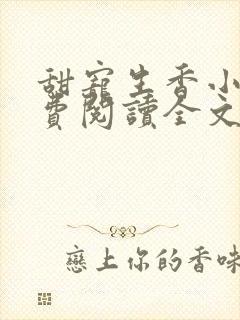 甜寵生香小
費閱讀全文
戀上你的香味